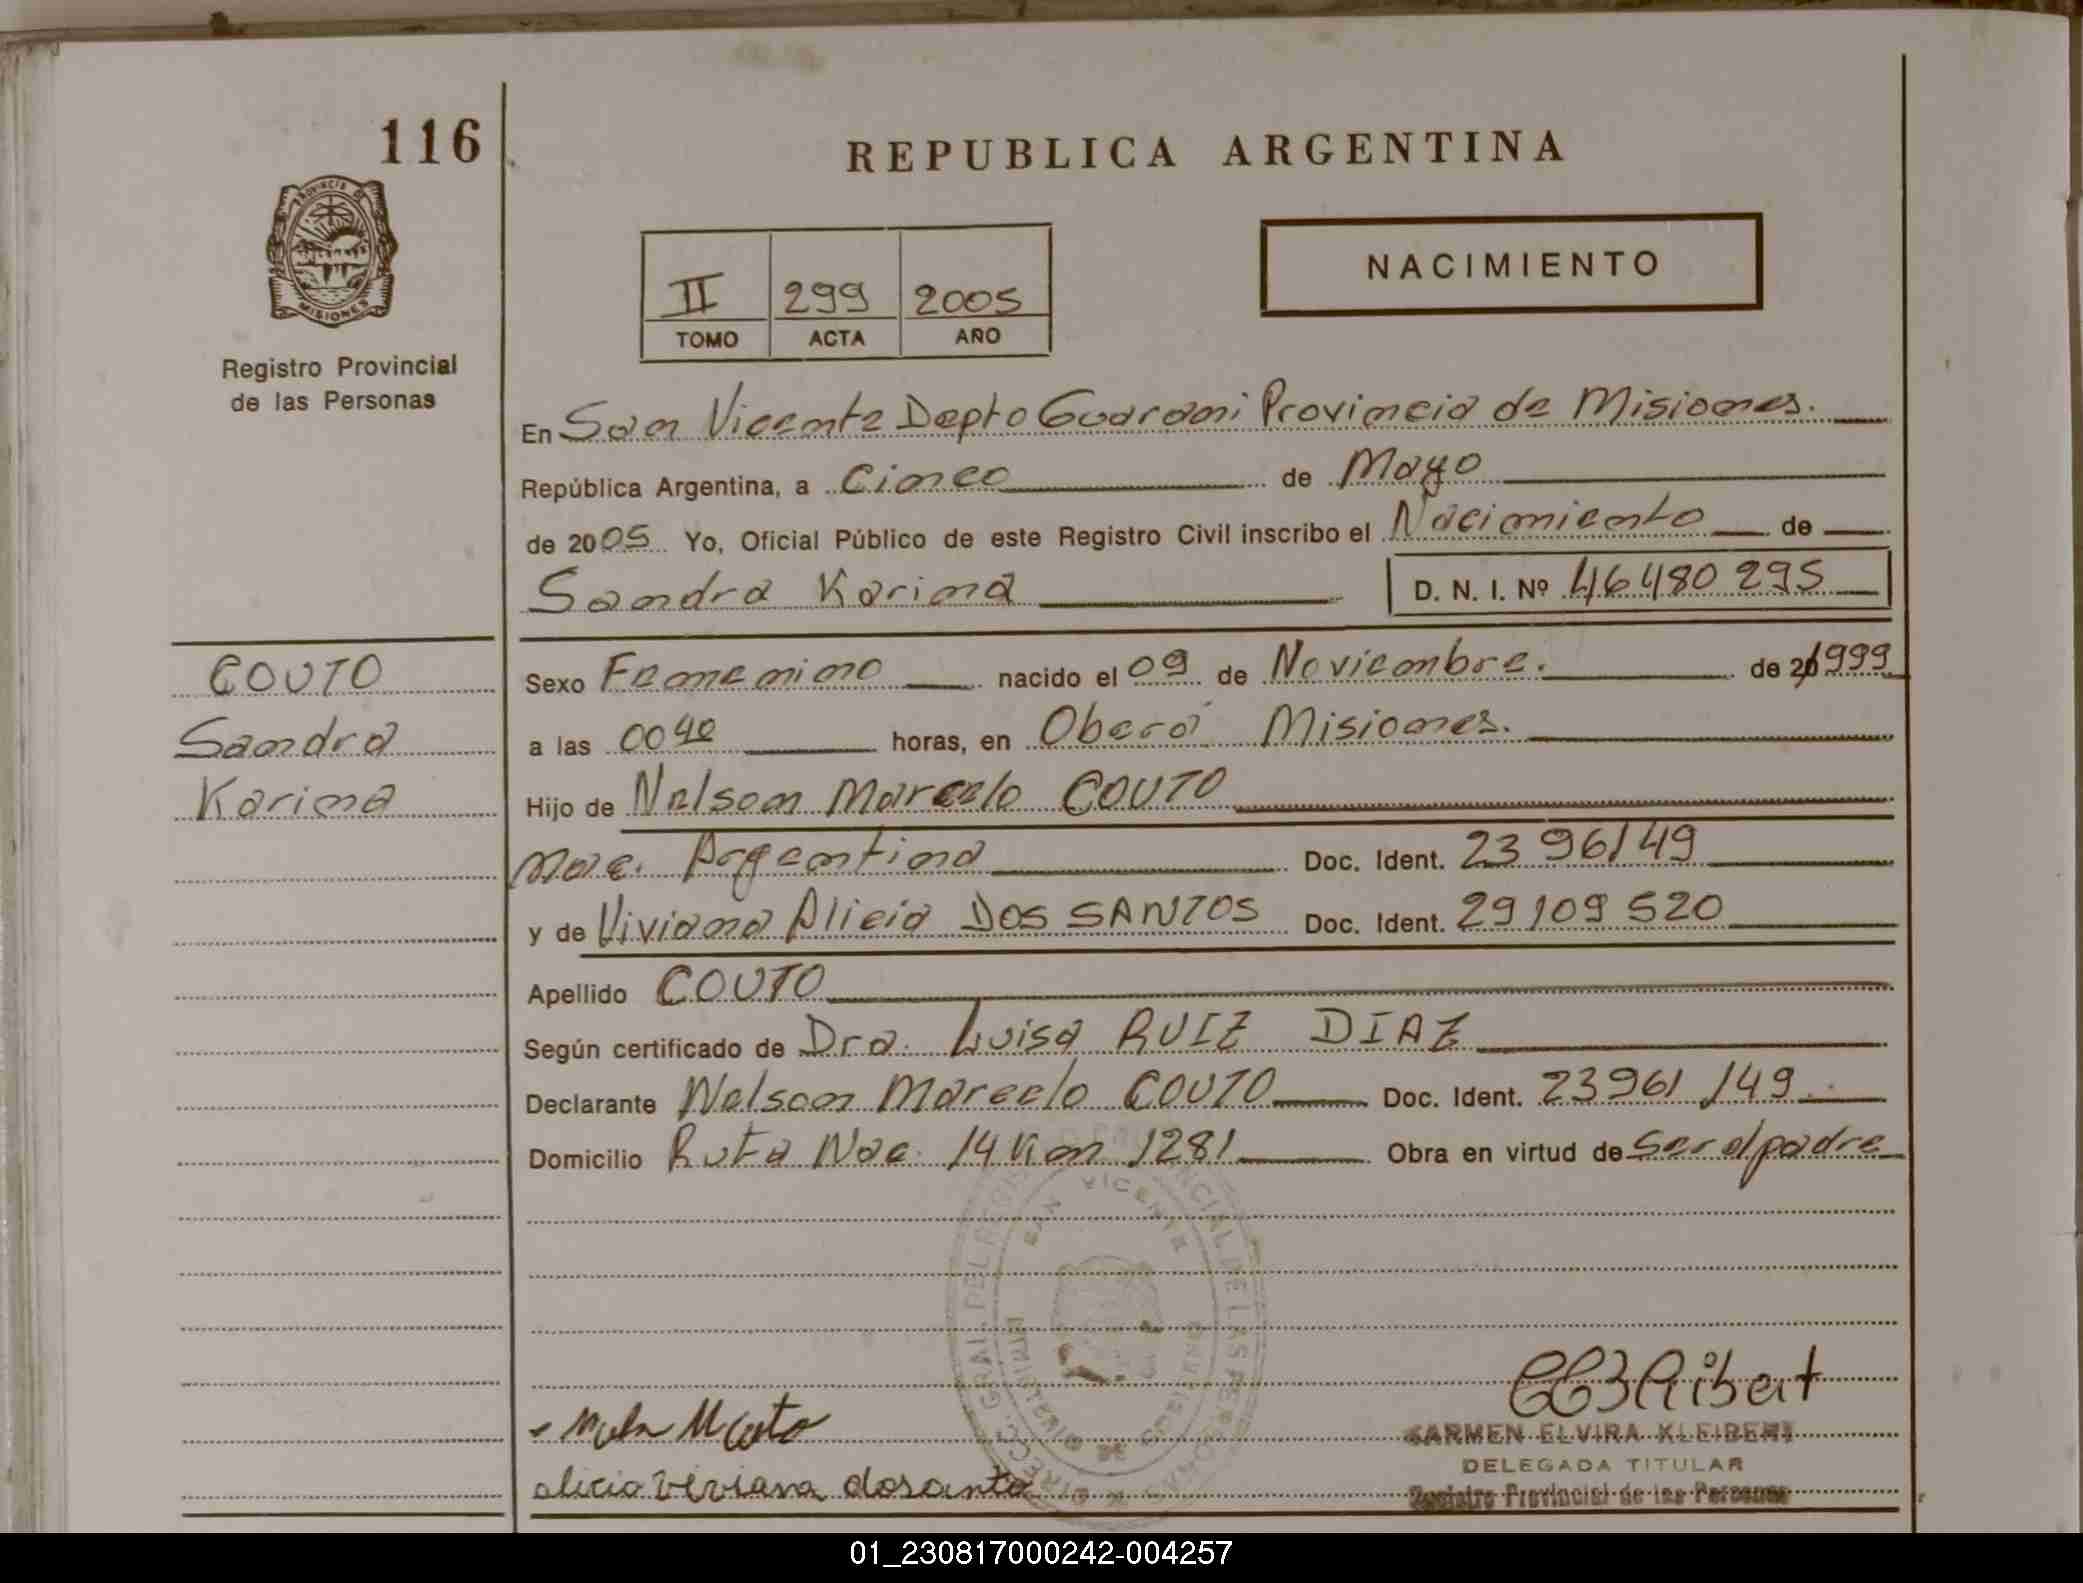 116
REPUBLICA ARGENTINA
PROVINCIA DE
MISIONES
Registro Provincial
de las Personas
NACIMIENTO
II 299 2005
TOMO ACTA AÑO
En San Vicente Depto Guarani Provincia de Misiones.
República Argentina, a Cinco de Mayo
de 2005 Yo, Oficial Público de este Registro Civil inscribo el Nacimiento de
Sandra Karina D. N. I. Nº 46480295
COUTO
Sandra
Karina
Sexo Femenino nacido el 09 de Noviembre. de 1999
a las 0040 horas, en Oberá Misiones.
Hijo de Nelson Marcelo COUTO
Nac. Argentina Doc. Ident. 23 961149
y de Viviana Alicia DOS SANTOS Doc. Ident. 29109520
Apellido COUTO
Según certificado de Dra. Luisa RUIZ DIAZ
Declarante Nelson Marcelo COUTO Doc. Ident. 23961149
Domicilio Ruta Nac. 14 Km 1281 Obra en virtud de Ser el padre
SAN VICENTE
MINISTERIO DE GOBIERNO
CARMEN ELVIRA KLEIBERT
alicia viviana dosanto
DELEGADA TITULAR
Registro Provincial de las Personas
01_230817000242-004257